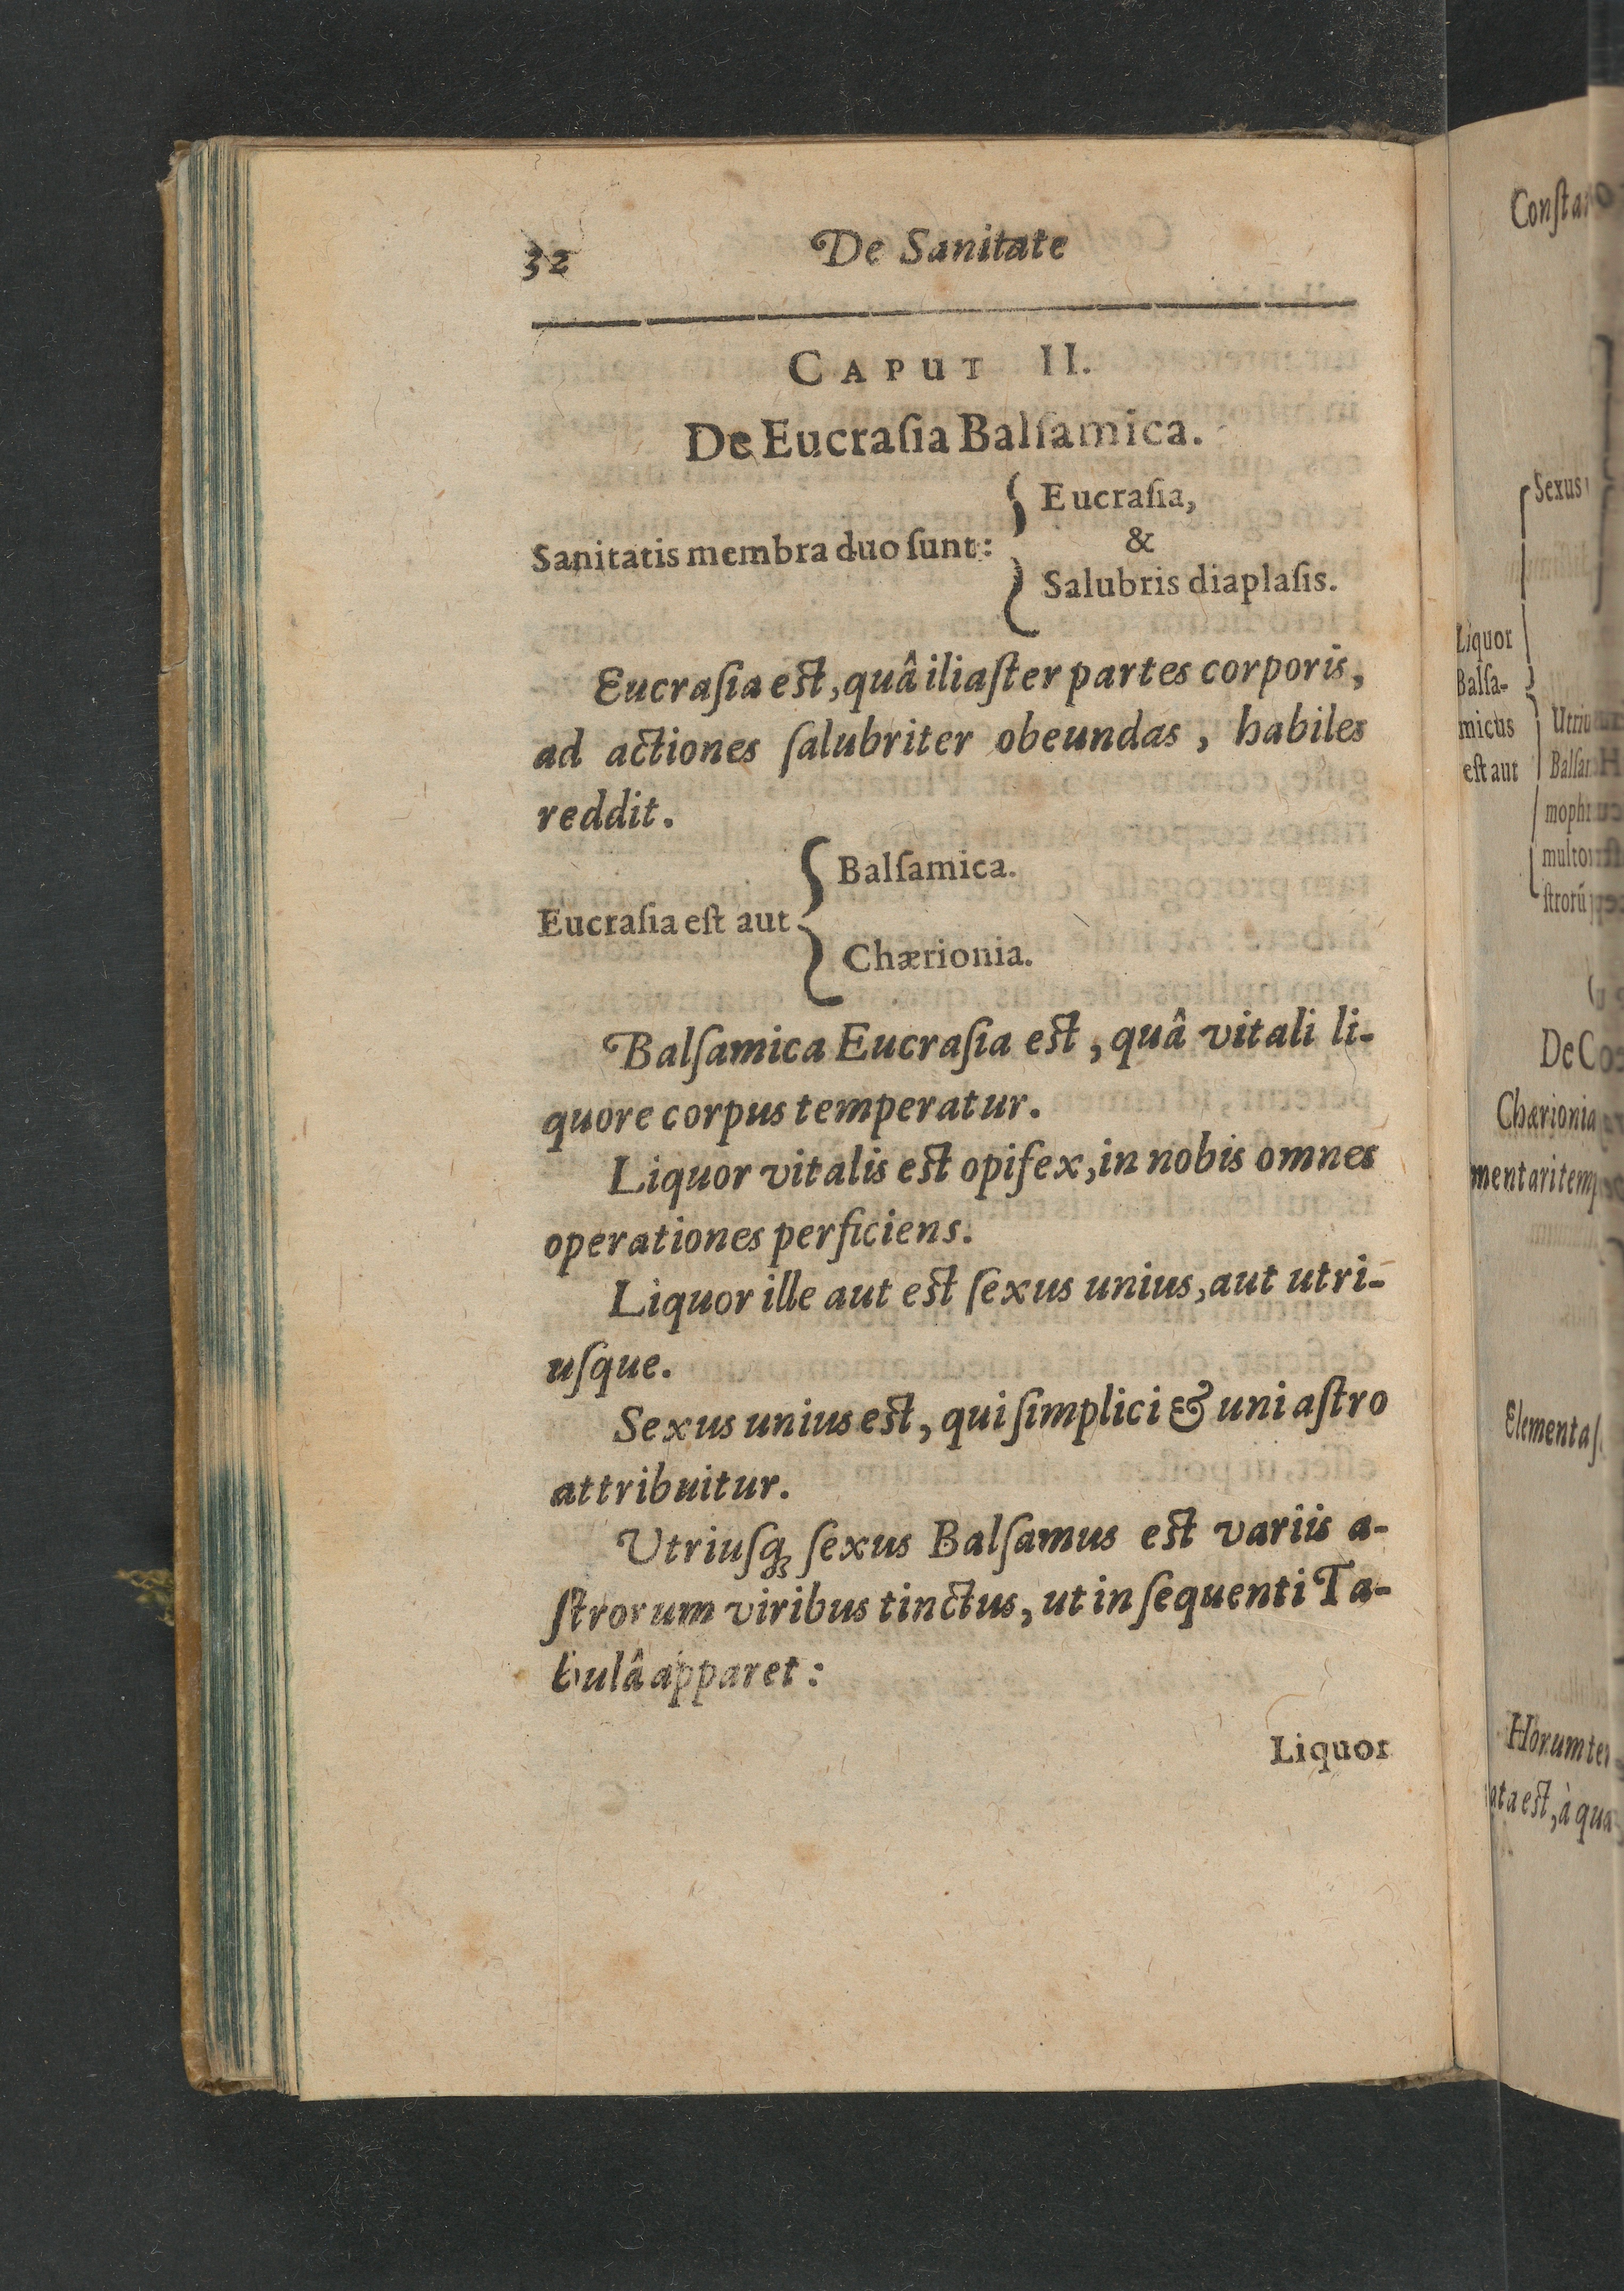 32 De Sanitate
CAPUT II.
De Eucraſia Balſamica.
Sanitatis membra duo ſunt: { Eucraſia,
&
Salubris diaplaſis.
Eucraſia eſt, quâ iliaſter partes corporis,
ad actiones ſalubriter obeundas, habiles
reddit.
Eucraſia eſt aut { Balſamica.
Chærionia.
Balſamica Eucraſia eſt, quâ vitali li-
quore corpus temperatur.
Liquor vitalis eſt opifex, in nobis omnes
operationes perficiens.
Liquor ille aut eſt ſexus unius, aut utri-
uſque.
Sexus unius eſt, qui ſimplici & uni aſtro
attribuitur.
Utriuſq; ſexus Balſamus eſt variis a-
ſtrorum viribus tinctus, ut in ſequenti Ta-
bulâ apparet:
Liquor
Sexus
Liquor
Balſa-
micus
eſt aut
De C
Chærionia
Elementa
Horum